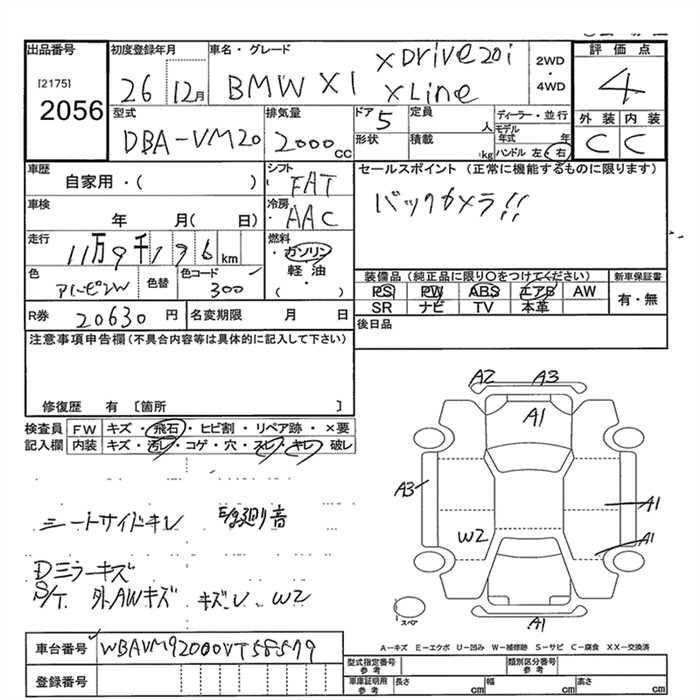 出品番号
[2175]
2056
初度登録年月
26 12月
車名・グレード
BMW X1
xDrive20i
xLine
2WD
・
4WD
評価点
4
外装 内装
C C
型式
DBA-VM20
排気量
2000cc
ドア 5
形状
定員 人
積載 kg
ディーラー・並行
モデル年式 年
ハンドル 左・右
車歴
自家用・( )
シフト
FAT
セールスポイント (正常に機能するものに限ります)
バックカメラ!!
車検
年 月( 日)
冷房
AAC
走行
11万9千196km
燃料
・ガソリン
軽油・
( )
色
アルピンW
色替
色コード
300
装備品(純正品に限り○をつけてください)
PS PW ABS エアB AW
SR ナビ TV 本革
新車保証書
有・無
R券 20630円
名変期限 月 日
後日品
注意事項申告欄(不具合内容等は具体的に記入して下さい)
修復歴 有 〔箇所 〕
検査員記入欄
FW キズ・飛石・ヒビ割・リペア跡・×要
内装 キズ・汚レ・コゲ・穴・スレ・キレ・破レ
A2 A3
A1
A3
A1
W2
A1
スペア
A1
シートサイドキレ
音
Dミラーキズ
S/T 外AWキズ キズ、U、W2
A-キズ E-エクボ U-凹み W-補修跡 S-サビ C-腐食 XX-交換済
車台番号 WBAVM92000VT58579
登録番号
型式指定番号 参考
類別区分番号 参考
車庫証明用 参考
長さ cm 幅 cm 高さ cm